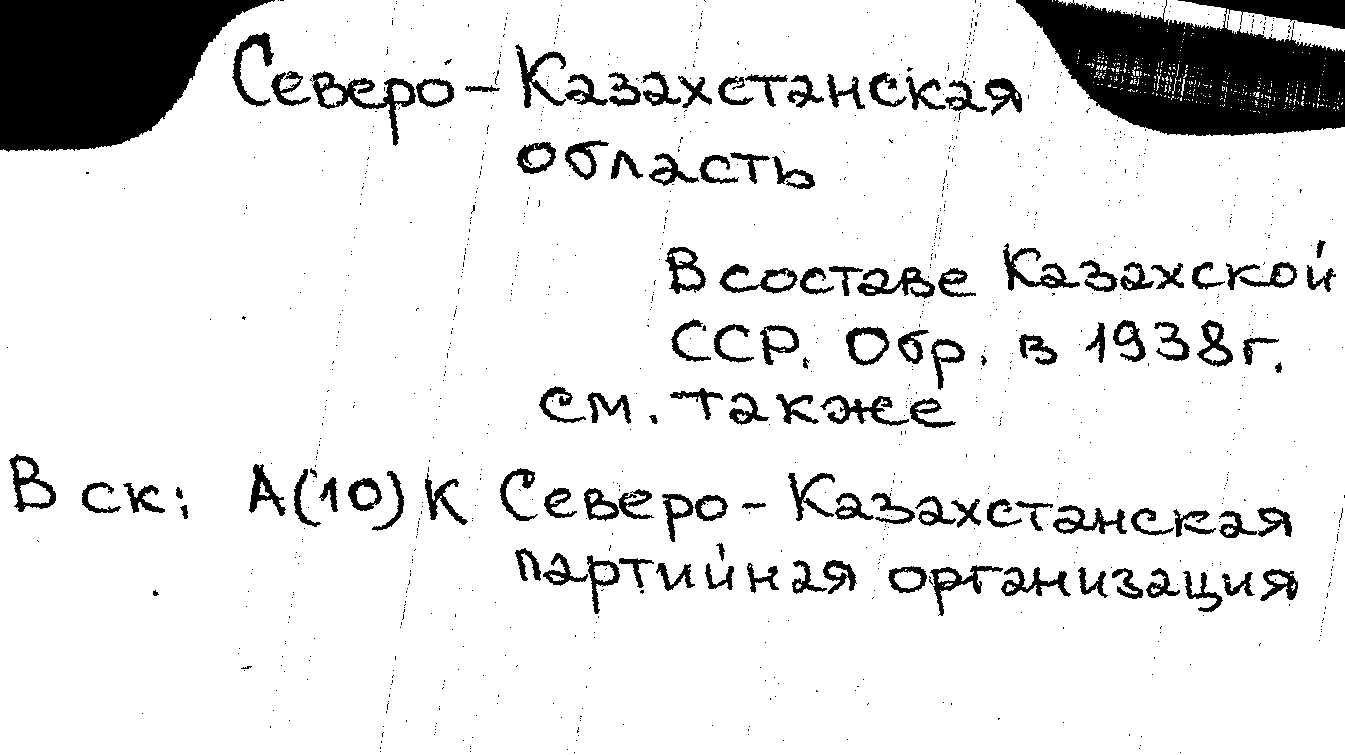 Северо-Казахстанская
область
В составе Казахской
ССР. Обр. в 1938г.
см. также
В ск: А(10)К Северо-Казахстанская
партийная организация